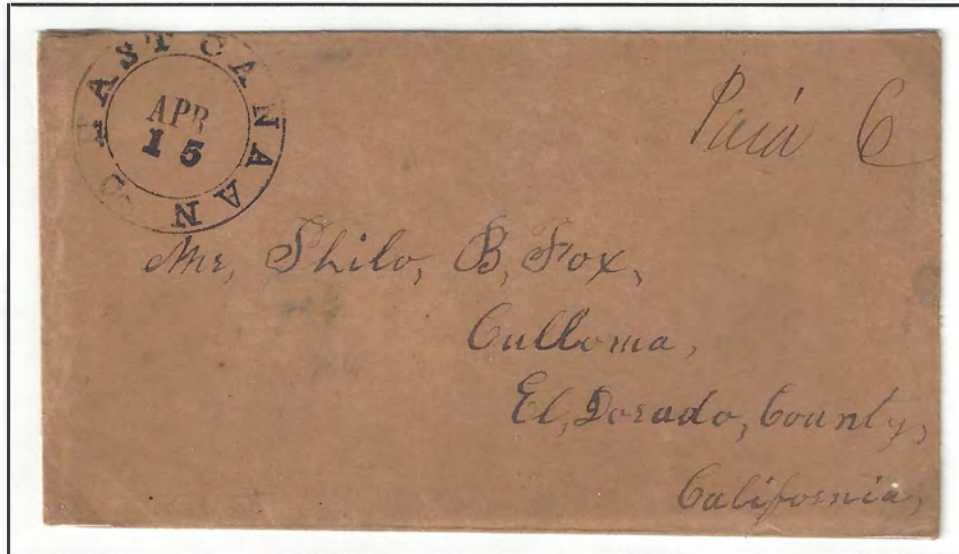 EAST CANAAN Co
APR
15
Paid 6
Mr, Philo, B, Fox,
Culloma,
El, Dorado, County,
California,